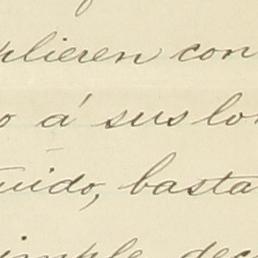 plieren con
o á sus lo
uido, basta
imple dec